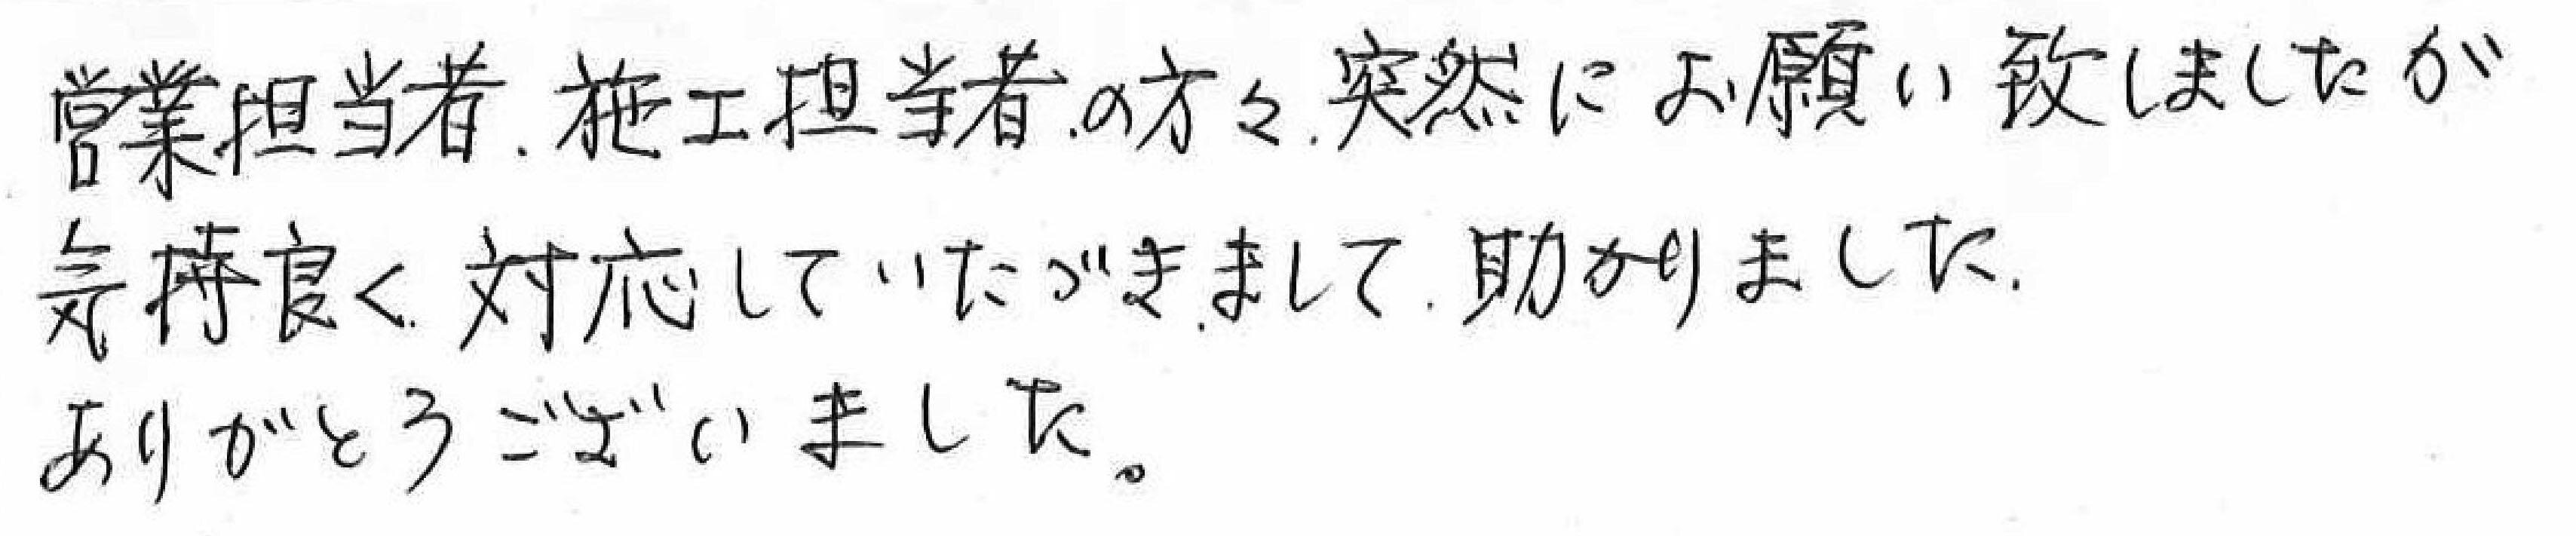 営業担当者、施工担当者の方々、突然にお願い致しましたが
気持良く対応していたづきまして、助かりました。
ありがとうございました。